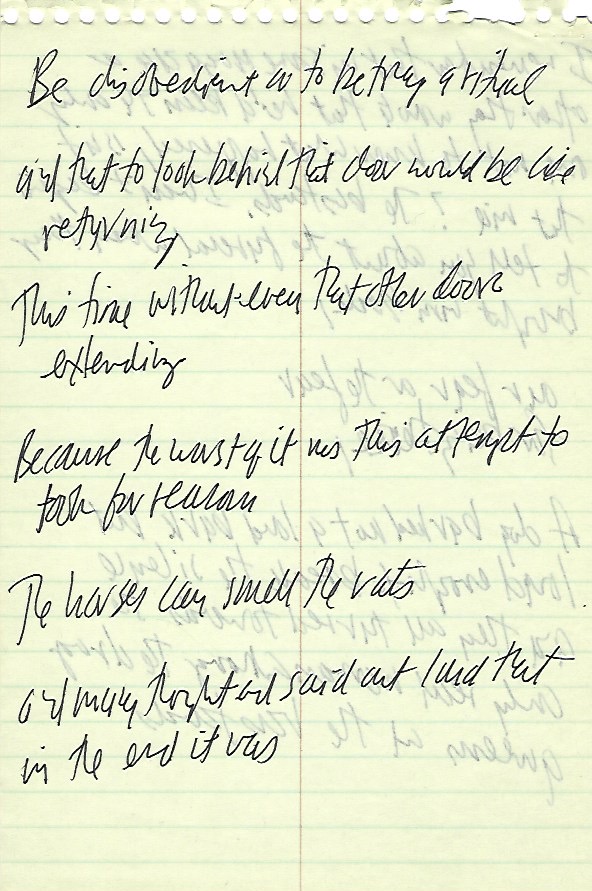 Be disobedient or to betray a ritual
and that to look behind that door would be like
returning
This time without even that other door
extending
Because the worst of it was this attempt to
look for reason
The horses can smell the rats
and many thought and said out loud that
in the end it was